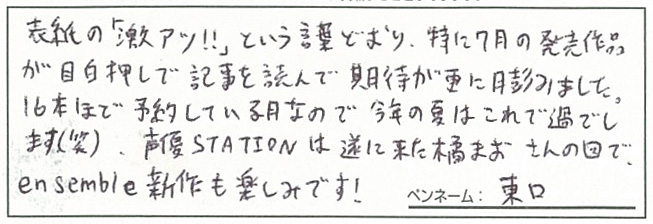 表紙の「激アツ!!」という言葉どおり、特に7月の発売作品
が目白押しで記事を読んで期待が更に膨みました。
16本ほど予約している月なので今年の夏はこれで過ごし
ます(笑)、声優STATIONは遂に来た橘まお さんの回で、
ensemble新作も楽しみです!
ペンネーム: 東口